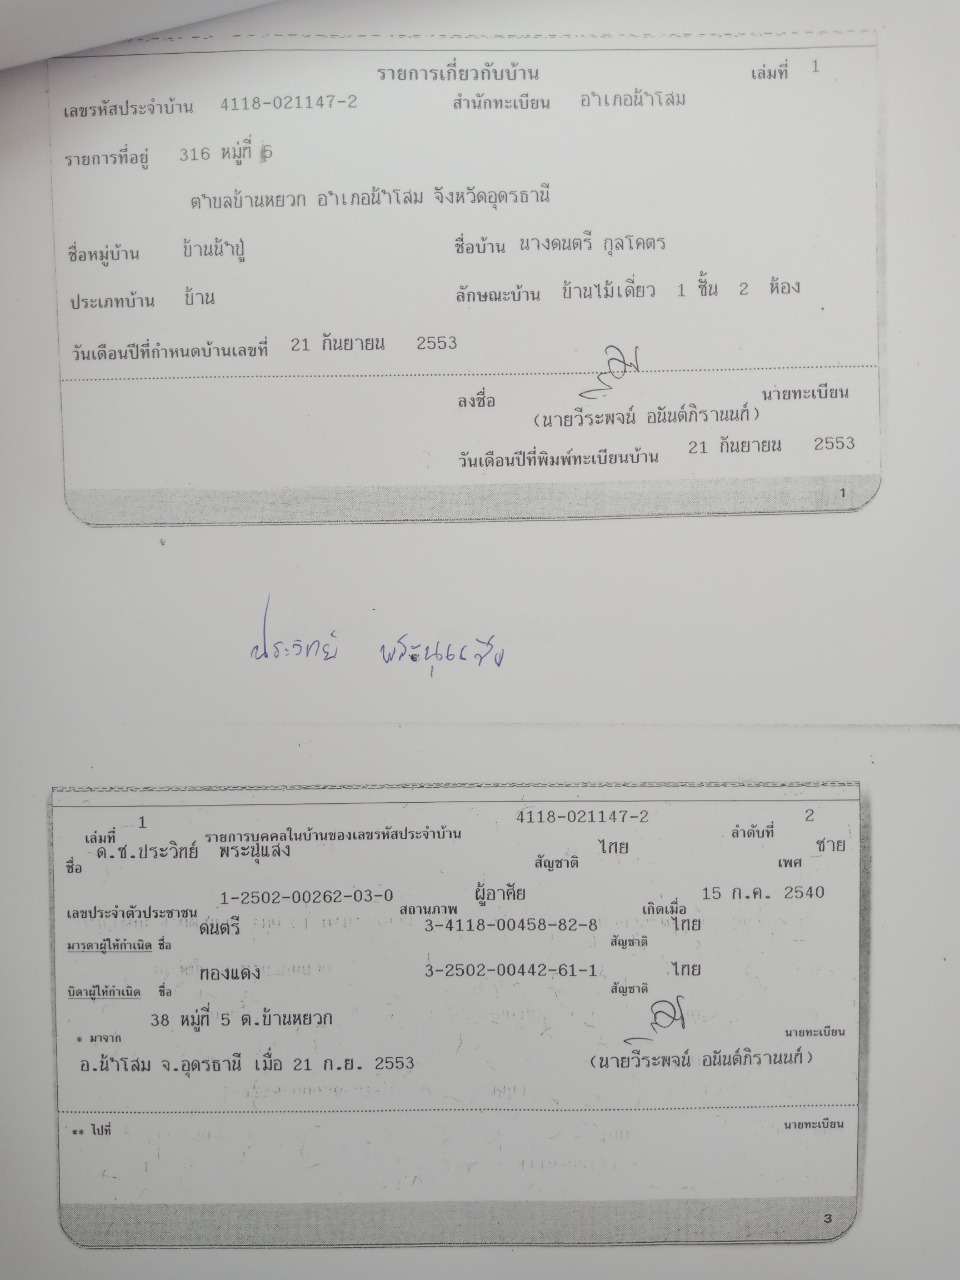 รายการเกี่ยวกับบ้าน เล่มที่ 1
เลขรหัสประจำบ้าน 4118-021147-2 สำนักทะเบียน อำเภอน้ำโสม
รายการที่อยู่ 316 หมู่ที่ 5
ตำบลบ้านหยวก อำเภอน้ำโสม จังหวัดอุดรธานี
ชื่อหมู่บ้าน บ้านน้ำปู่ ชื่อบ้าน นางดนตรี กุลโคตร
ประเภทบ้าน บ้าน ลักษณะบ้าน บ้านไม้เดี่ยว 1 ชั้น 2 ห้อง
วันเดือนปีที่กำหนดบ้านเลขที่ 21 กันยายน 2553
ลงชื่อ นายทะเบียน
(นายวีระพจน์ อนันต์ภิรานนท์)
วันเดือนปีที่พิมพ์ทะเบียนบ้าน 21 กันยายน 2553
1
ประวิทย์ พระนุแสง
เล่มที่ 1 รายการบุคคลในบ้านของเลขรหัสประจำบ้าน 4118-021147-2 ลำดับที่ 2
ชื่อ ด.ช.ประวิทย์ พระนุแสง สัญชาติ ไทย เพศ ชาย
เลขประจำตัวประชาชน 1-2502-00262-03-0 สถานภาพ ผู้อาศัย เกิดเมื่อ 15 ก.ค. 2540
มารดาผู้ให้กำเนิด ชื่อ ดนตรี 3-4118-00458-82-8 สัญชาติ ไทย
บิดาผู้ให้กำเนิด ชื่อ ทองแดง 3-2502-00442-61-1 สัญชาติ ไทย
* มาจาก 38 หมู่ที่ 5 ต.บ้านหยวก นายทะเบียน
อ.น้ำโสม จ.อุดรธานี เมื่อ 21 ก.ย. 2553 (นายวีระพจน์ อนันต์ภิรานนท์)
** ไปที่ นายทะเบียน
3